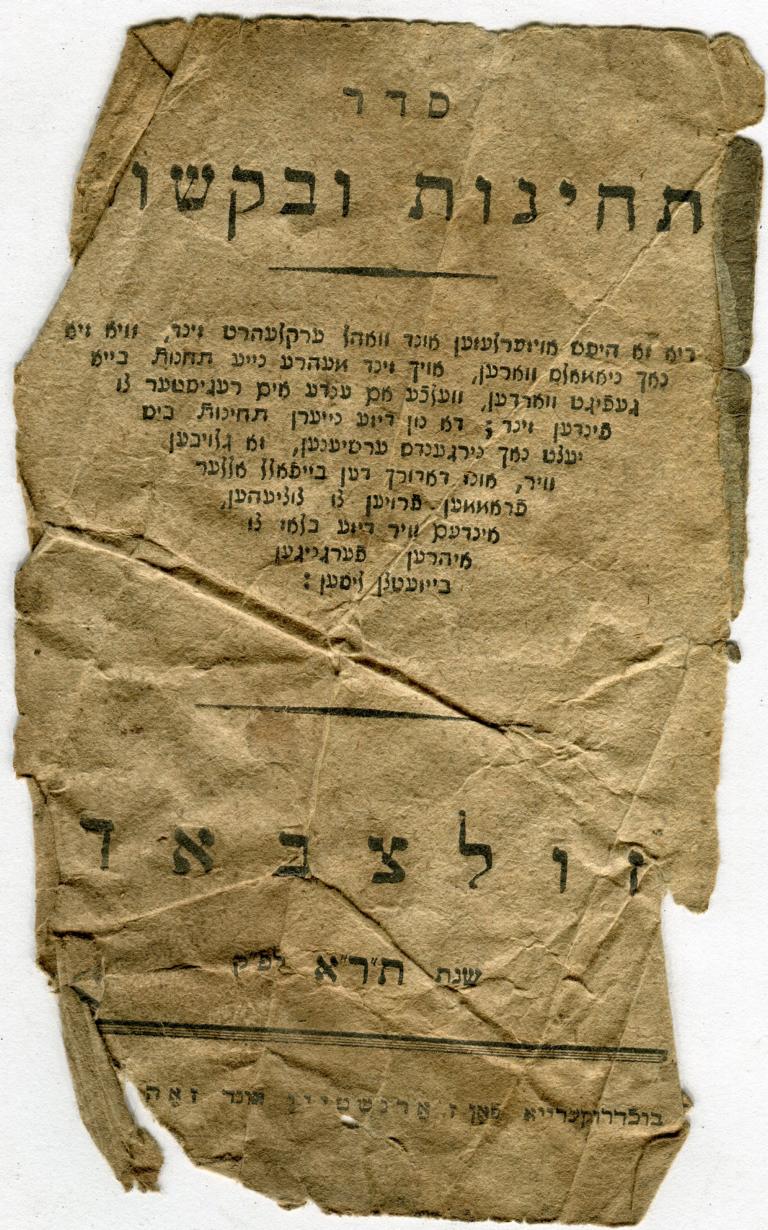 סדר
תחינות ובקשו
דיא זא היפש אויסרלעזען אונד וואהל ערקלעהרט זינד, וויא זיא
נאך ניאמאלס ווארען, אויך זינד מעהרע נייע תחנות בייא
געפיגט ווארדען, וועלכע אם ענדע אים רעגיסטער צו
פינדען זינד; דא נון דיזע נייערן תחינות ביס
יעצט נאך נירגענדס ערשיענען, זא גלויבען
וויר, אונז דאדורך דען בייפאלל אללער
פראממען פרויען צו צוציעהען,
אינדעם וויר דיזע בלאז צו
איהרען פערגניגען
בייזעטצן ליסען:
זולצבאך
שנת ת"ר"א לפ"ק
בוכדרוקערייא פאן ז ארנשטיין אונד זאה